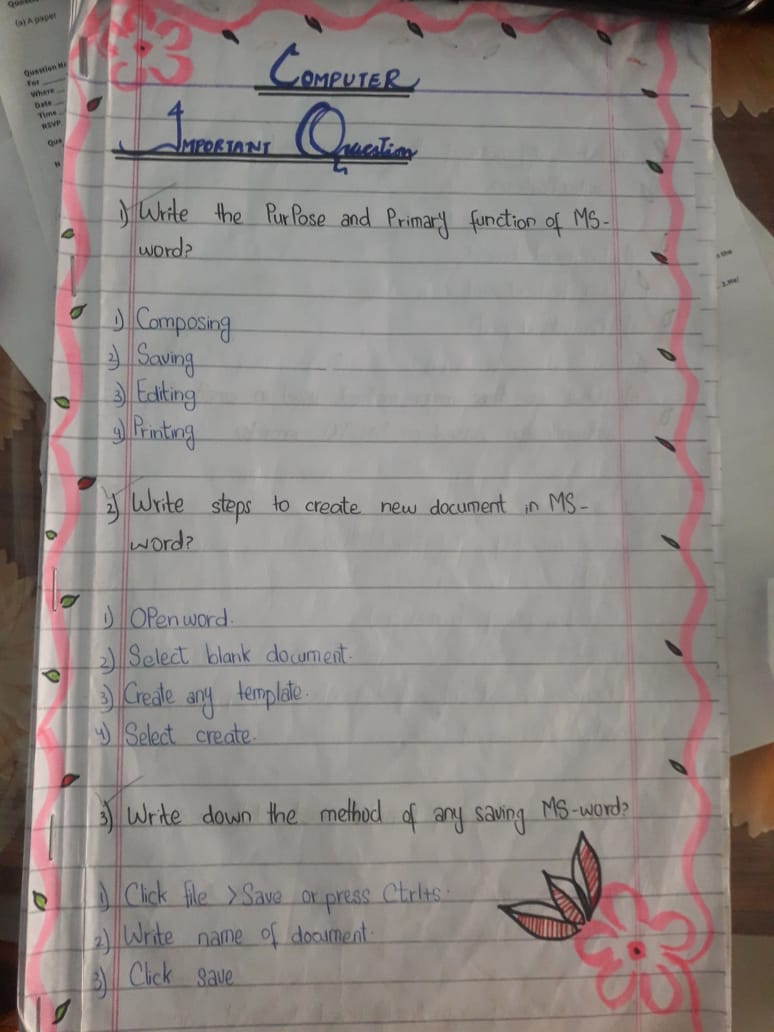 (a) A paper
Question No
For
Where
Date
Time
RSVP.
Que
COMPUTER
IMPORTANT Question
1) Write the PurPose and Primary function of MS-
word?
1) Composing
2) Saving
3) Editing
4) Printing
2) Write steps to create new document in MS-
word?
1) OPen word.
2) Select blank document.
3) Create any template.
4) Select create.
3) Write down the method of any saving MS-word?
1) Click file > Save or press Ctrl+s.
2) Write name of document.
3) Click save